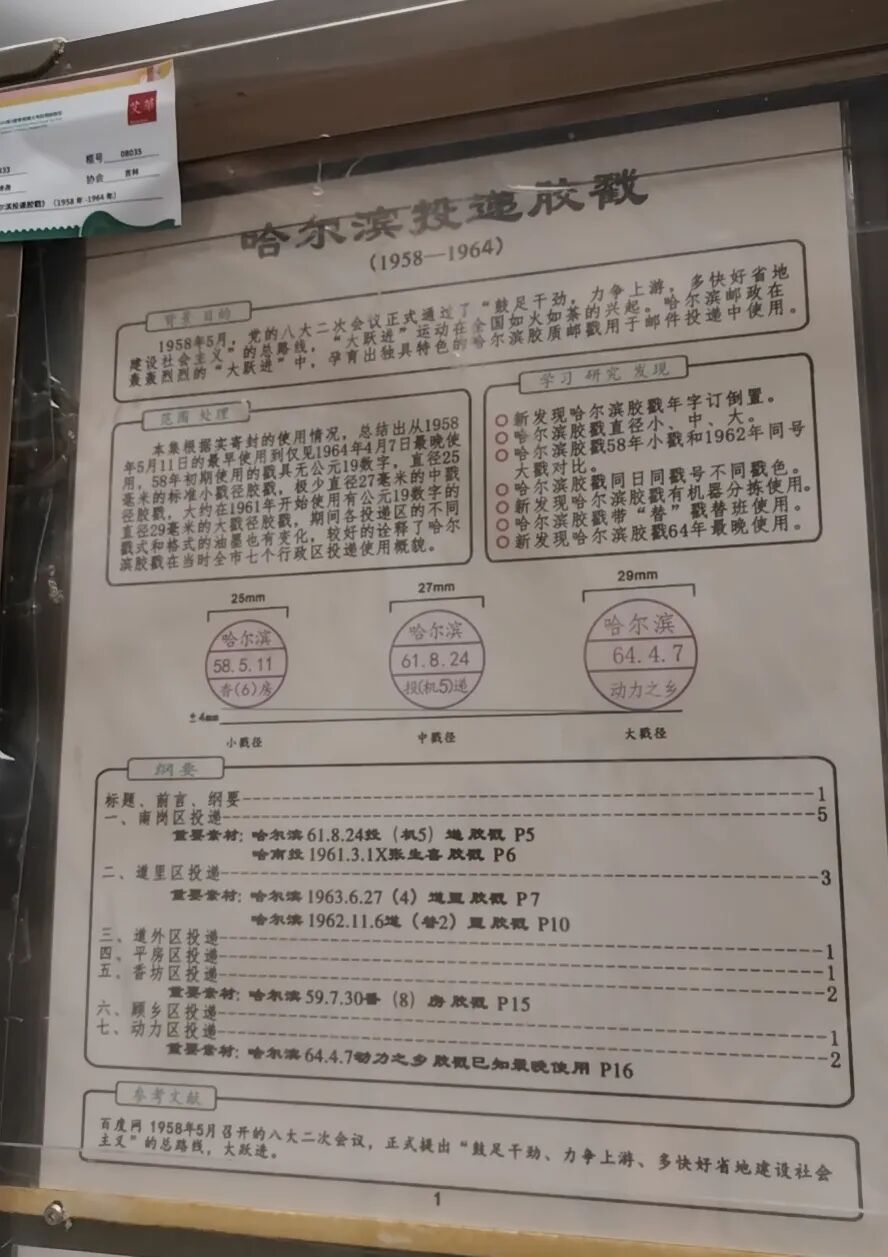 艾华
框号 08035
033
协会 吉林
尔滨投递胶戳》（1958年-1964年）
哈尔滨投递胶戳
（1958—1964）
背景 目的
1958年5月，党的八大二次会议正式通过了“鼓足干劲，力争上游，多快好省地
建设社会主义”的总路线，“大跃进”运动在全国如火如荼的兴起。哈尔滨邮政在
轰轰烈烈的“大跃进”中，孕育出独具特色的哈尔滨胶质邮戳用于邮件投递中使用。
范围 处理
本集根据实寄封的使用情况，总结出从1958
年5月11日的最早使用到仅见1964年4月7日最晚使
用，58年初期使用的戳具无公元19数字，直径25
毫米的标准小戳径胶戳，极少直径27毫米的中戳
径胶戳，大约在1961年开始使用有公元19数字的
直径29毫米的大戳径胶戳，期间各投递区的不同
戳式和格式的油墨也有变化，较好的诠释了哈尔
滨胶戳在当时全市七个行政区投递使用概貌。
学习 研究 发现
新发现哈尔滨胶戳年字订倒置。
哈尔滨胶戳直径小、中、大。
哈尔滨胶戳58年小戳和1962年同号
大戳对比。
哈尔滨胶戳同日同戳号不同戳色。
新发现哈尔滨胶戳有机器分拣使用。
哈尔滨胶戳带“替”戳替班使用。
新发现哈尔滨胶戳64年最晚使用。
25mm
27mm
29mm
哈尔滨
58.5.11
香(6)房
哈尔滨
61.8.24
投(机5)递
哈尔滨
64.4.7
动力之乡
±4mm
小戳径
中戳径
大戳径
纲要
标题、前言、纲要--------1
一、南岗区投递--------5
重要素材：哈尔滨61.8.24投（机5）递胶戳 P5
哈南投1961.3.1X张生喜胶戳 P6
二、道里区投递--------3
重要素材：哈尔滨1963.6.27（4）道里胶戳 P7
哈尔滨1962.11.6道（替2）里胶戳 P10
三、道外区投递--------1
四、平房区投递--------1
五、香坊区投递--------2
重要素材：哈尔滨59.7.30香（8）房胶戳 P15
六、顾乡区投递--------1
七、动力区投递--------2
重要素材：哈尔滨64.4.7动力之乡胶戳已知最晚使用 P16
参考文献
百度网 1958年5月召开的八大二次会议，正式提出“鼓足干劲、力争上游、多快好省地建设社会
主义”的总路线，大跃进。
1